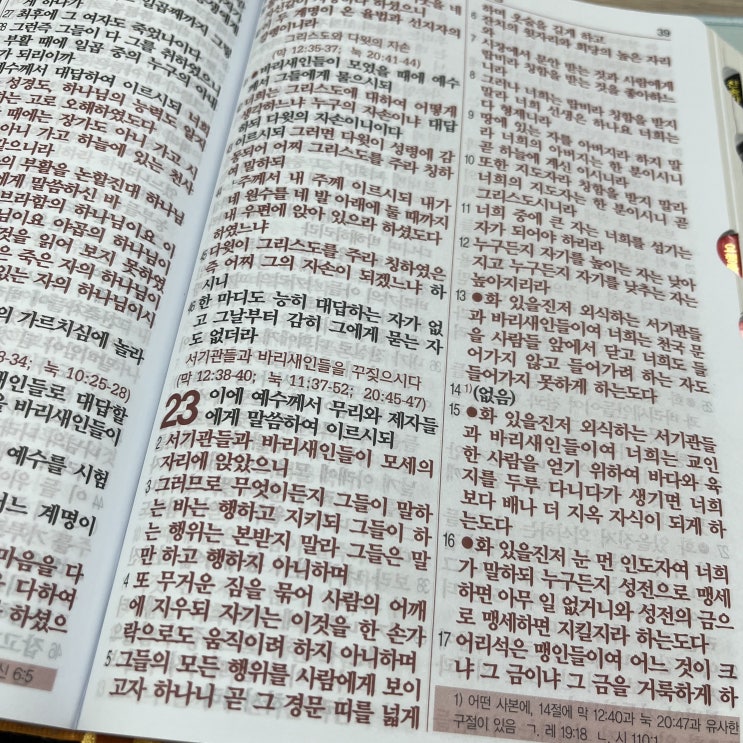 27 최후에 그 여자도 죽었나이다
28 그런즉 그들이 다 그를 취하였으니
부활 때에 일곱 중의 누구의 아내
가 되리이까
예수께서 대답하여 이르시되 너희
성경도, 하나님의 능력도 알지
하는 고로 오해하였도다
때에는 장가도 아니 가고 시
아니 가고 하늘에 있는 천사
같으니라
의 부활을 논할진대 하나님
에게 말씀하신 바
브라함의 하나님이요 이
님이요 야곱의 하나님이
것을 읽어 보지 못하였
은 죽은 자의 하나님이
있는 자의 하나님이시
의 가르치심에 놀라
8-34; 눅 10:25-28)
새인들로 대답할
을 바리새인들이
예수를 시험
어느 계명이
마음을 다
다하여
하셨으
신 6:5
두 계명이 온 율법과 선지자의
강령이니라
그리스도와 다윗의 자손
(막 12:35-37; 눅 20:41-44)
바리새인들이 모였을 때에 예수
께서 그들에게 물으시되
너희는 그리스도에 대하여 어떻게
생각하느냐 누구의 자손이냐 대답
하되 다윗의 자손이니이다
이르시되 그러면 다윗이 성령에 감
동되어 어찌 그리스도를 주라 칭하
여 말하되
주께서 내 주께 이르시되 내가
네 원수를 네 발 아래에 둘 때까지
내 우편에 앉아 있으라 하셨도다
하였느냐
45 다윗이 그리스도를 주라 칭하였은
즉 어찌 그의 자손이 되겠느냐 하
시니
46 한 마디도 능히 대답하는 자가 없
고 그날부터 감히 그에게 묻는 자
도 없더라
서기관들과 바리새인들을 꾸짖으시다
(막 12:38-40; 눅 11:37-52; 20:45-47)
23 이에 예수께서 무리와 제자들
에게 말씀하여 이르시되
2 서기관들과 바리새인들이 모세의
자리에 앉았으니
3 그러므로 무엇이든지 그들이 말하
는 바는 행하고 지키되 그들이 하
는 행위는 본받지 말라 그들은 말
만 하고 행하지 아니하며
4 또 무거운 짐을 묶어 사람의 어깨
에 지우되 자기는 이것을 한 손가
락으로도 움직이려 하지 아니하며
5 그들의 모든 행위를 사람에게 보이
고자 하나니 곧 그 경문 띠를 넓게
39
하며 옷술을 길게 하고
6 잔치의 윗자리와 회당의 높은 자리
7 시장에서 문안 받는 것과 사람에게
랍비라 칭함을 받는 것을 좋아하느
8 그러나 너희는 랍비라 칭함을 받지
말라 너희 선생은 하나요 너희는
다 형제니라
9 땅에 있는 자를 아버지라 하지 말
라 너희의 아버지는 한 분이시니
곧 하늘에 계신 이시니라
10 또한 지도자라 칭함을 받지 말라
너희의 지도자는 한 분이시니 곧
그리스도시니라
11 너희 중에 큰 자는 너희를 섬기는
자가 되어야 하리라
12 누구든지 자기를 높이는 자는 낮아
지고 누구든지 자기를 낮추는 자는
높아지리라
13 ●화 있을진저 외식하는 서기관들
과 바리새인들이여 너희는 천국 문
을 사람들 앞에서 닫고 너희도 들
어가지 않고 들어가려 하는 자도
들어가지 못하게 하는도다
14 1)(없음)
15 ●화 있을진저 외식하는 서기관들
과 바리새인들이여 너희는 교인
한 사람을 얻기 위하여 바다와 육
지를 두루 다니다가 생기면 너희
보다 배나 더 지옥 자식이 되게 하
는도다
16 ●화 있을진저 눈 먼 인도자여 너희
가 말하되 누구든지 성전으로 맹세
하면 아무 일 없거니와 성전의 금으
로 맹세하면 지킬지라 하는도다
17 어리석은 맹인들이여 어느 것이 크
냐 그 금이냐 그 금을 거룩하게 하
1) 어떤 사본에, 14절에 막 12:40과 눅 20:47과 유사한
구절이 있음 ㄱ. 레 19:18 ㄴ. 시 110:1